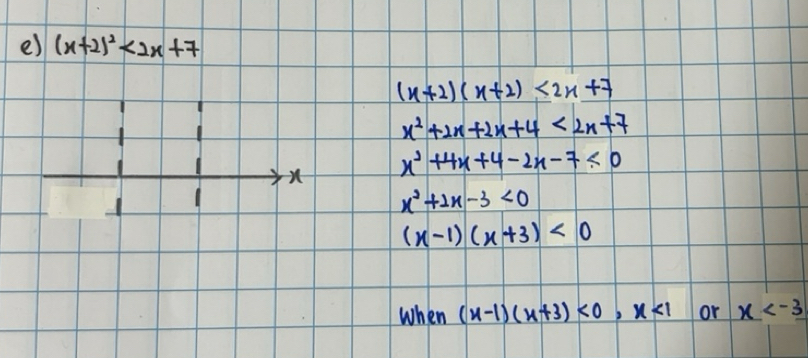 e) (x+2)² < 2x+7
(x+2)(x+2) < 2x+7
x²+2x+2x+4 < 2x+7
x²+4x+4-2x-7 < 0
x²+2x-3 < 0
(x-1)(x+3) < 0
x
When (x-1)(x+3) < 0, x < 1 or x < -3